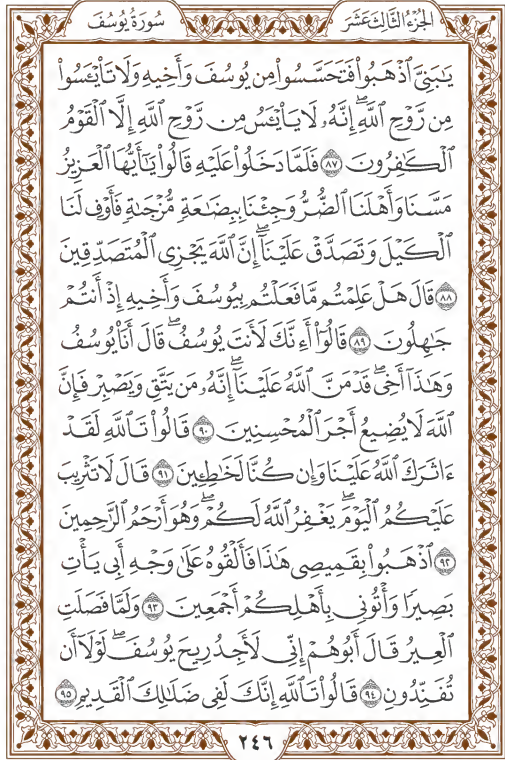 سُورَةُ يُوسُفَ الجُزْءُ الثَّالِثَ عَشَرَ
يَٰبَنِيَّ ٱذْهَبُوا۟ فَتَحَسَّسُوا۟ مِن يُوسُفَ وَأَخِيهِ وَلَا تَا۟يْـَٔسُوا۟
مِن رَّوْحِ ٱللَّهِ ۖ إِنَّهُۥ لَا يَا۟يْـَٔسُ مِن رَّوْحِ ٱللَّهِ إِلَّا ٱلْقَوْمُ
ٱلْكَٰفِرُونَ ٨٧ فَلَمَّا دَخَلُوا۟ عَلَيْهِ قَالُوا۟ يَٰٓأَيُّهَا ٱلْعَزِيزُ
مَسَّنَا وَأَهْلَنَا ٱلضُّرُّ وَجِئْنَا بِبِضَٰعَةٍ مُّزْجَىٰةٍ فَأَوْفِ لَنَا
ٱلْكَيْلَ وَتَصَدَّقْ عَلَيْنَآ ۖ إِنَّ ٱللَّهَ يَجْزِى ٱلْمُتَصَدِّقِينَ
٨٨ قَالَ هَلْ عَلِمْتُم مَّا فَعَلْتُم بِيُوسُفَ وَأَخِيهِ إِذْ أَنتُمْ
جَٰهِلُونَ ٨٩ قَالُوٓا۟ أَءِنَّكَ لَأَنتَ يُوسُفُ ۖ قَالَ أَنَا۠ يُوسُفُ
وَهَٰذَآ أَخِى ۖ قَدْ مَنَّ ٱللَّهُ عَلَيْنَآ ۖ إِنَّهُۥ مَن يَتَّقِ وَيَصْبِرْ فَإِنَّ
ٱللَّهَ لَا يُضِيعُ أَجْرَ ٱلْمُحْسِنِينَ ٩٠ قَالُوا۟ تَٱللَّهِ لَقَدْ
ءَاثَرَكَ ٱللَّهُ عَلَيْنَا وَإِن كُنَّا لَخَٰطِـِٔينَ ٩١ قَالَ لَا تَثْرِيبَ
عَلَيْكُمُ ٱلْيَوْمَ ۖ يَغْفِرُ ٱللَّهُ لَكُمْ ۖ وَهُوَ أَرْحَمُ ٱلرَّٰحِمِينَ
٩٢ ٱذْهَبُوا۟ بِقَمِيصِى هَٰذَا فَأَلْقُوهُ عَلَىٰ وَجْهِ أَبِى يَأْتِ
بَصِيرًا وَأْتُونِى بِأَهْلِكُمْ أَجْمَعِينَ ٩٣ وَلَمَّا فَصَلَتِ
ٱلْعِيرُ قَالَ أَبُوهُمْ إِنِّى لَأَجِدُ رِيحَ يُوسُفَ ۖ لَوْلَآ أَن
تُفَنِّدُونِ ٩٤ قَالُوا۟ تَٱللَّهِ إِنَّكَ لَفِى ضَلَٰلِكَ ٱلْقَدِيمِ ٩٥
٢٤٦